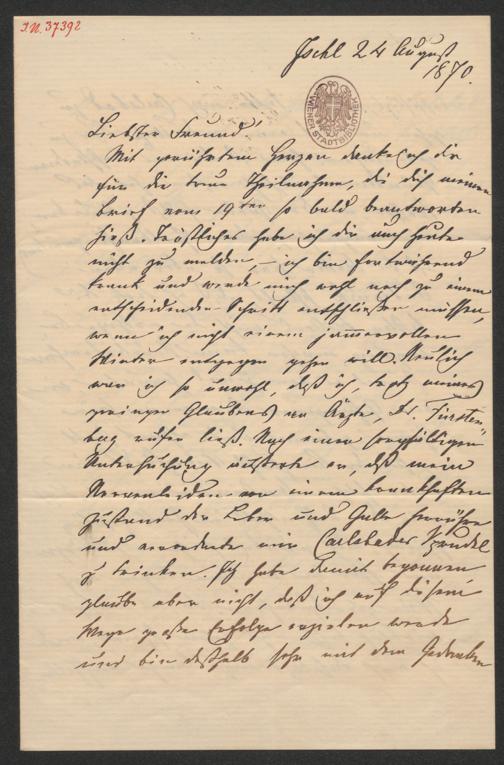 I.N. 37392
Ischl 24 August
1870.
WIENER STADTBIBLIOTHEK
Liebster Freund!
Mit gerührtem Herzen danke ich dir
für die treue Theilnahme, die dich meinen
Brief vom 19ten so bald beantworten
hieß. Tröstliches habe ich dir auch heute
nicht zu melden, – ich bin fortwährend
krank und werde mich wohl noch zu einem
entscheidenden Schritt entschließen müssen,
wenn ich nicht einem jammervollen
Winter entgegen gehen will. Neulich
war ich so unwohl, daß ich, trotz meines
geringen Glaubens an Ärzte, Dr. Fürsten-
berg rufen ließ. Nach einer sorgfältigen
Untersuchung äußerte er, daß mein
Nervenleiden von einem krankhaften
Zustand der Leber und Galle herrühre
und verordnete mir Carlsbader Sprudel
z trinken. Ich habe damit begonnen
glaube aber nicht, daß ich auf diesem
Wege große Erfolge erzielen werde
und bin deßhalb sehr mit dem Gedanken